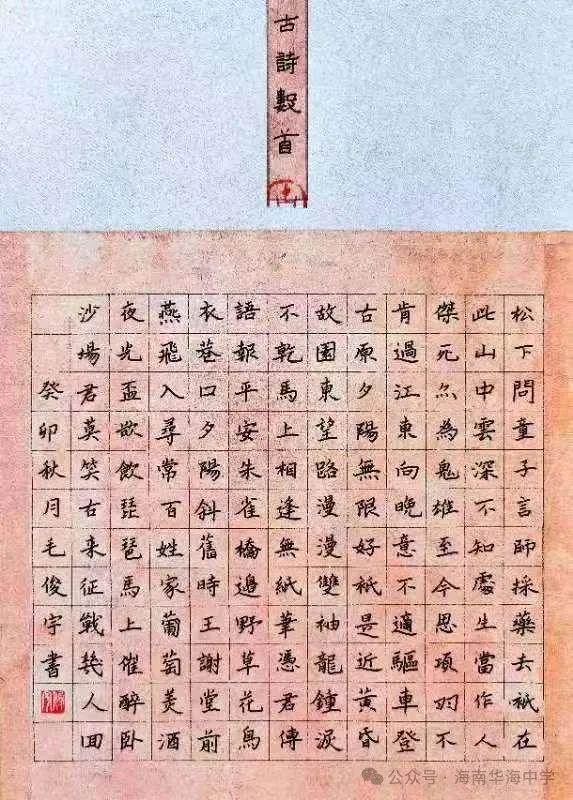 古詩數首
松下問童子言師採藥去衹在
此山中雲深不知處生當作人
傑死亦為鬼雄至今思項羽不
肯過江東向晚意不適驅車登
古原夕陽無限好衹是近黄昏
故園東望路漫漫雙袖龍鍾淚
不乾馬上相逢無紙筆憑君傳
語報平安朱雀橋邊野草花鳥
衣巷口夕陽斜舊時王謝堂前
燕飛入尋常百姓家葡萄美酒
夜光盃欲飲琵琶馬上催醉卧
沙場君莫笑古来征戰幾人回
癸卯秋月毛俊宇書
公众号·海南华海中学